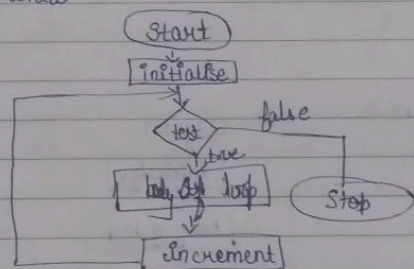 Start
initialise
test
false
true
body of loop
Stop
increment